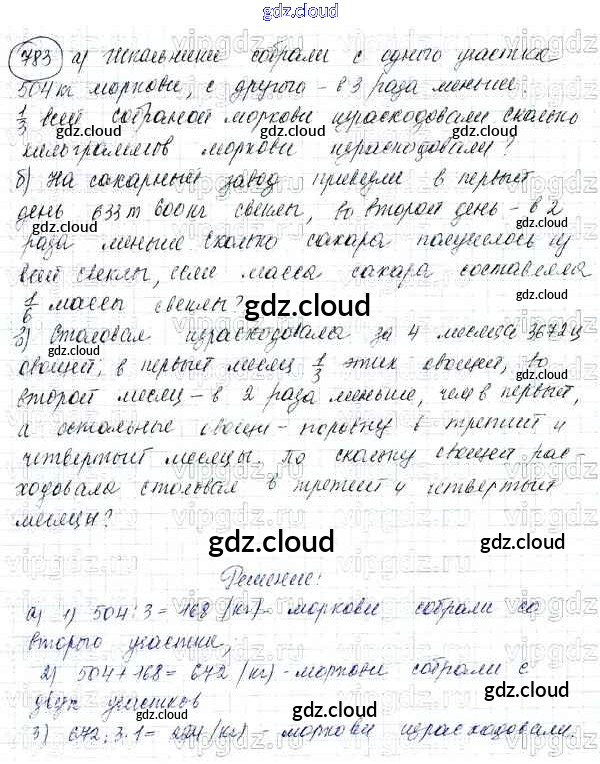 gdz.cloud
783 а) Школьники собрали с одного участка
504 кг моркови, с другого - в 3 раза меньше.
1/3 всей собраной моркови израсходовали. Сколько
килограммов моркови израсходовали?
б) На сахарный завод привезли в первый
день 633 т 600 кг свеклы, во второй день - в 2
раза меньше. Сколько сахара получилось из
всей свеклы, если масса сахара составляла
1/6 массы свеклы?
в) Столовая израсходовала за 4 месяца 3672 ц
овощей; в первый месяц 1/3 этих овощей, во
второй месяц - в 2 раза меньше, чем в первый,
а остальные овощи - поровну в третий и
четвертый месяцы. По сколько овощей рас-
ходовала столовая в третий и четвертый
месяцы?
gdz.cloud
Решение:
а) 1) 504 : 3 = 168 (кг) - моркови собрали со
второго участка;
2) 504 + 168 = 672 (кг) - моркови собрали с
двух участков
3) 672 : 3 · 1 = 224 (кг) - моркови израсходовали.
gdz.cloud